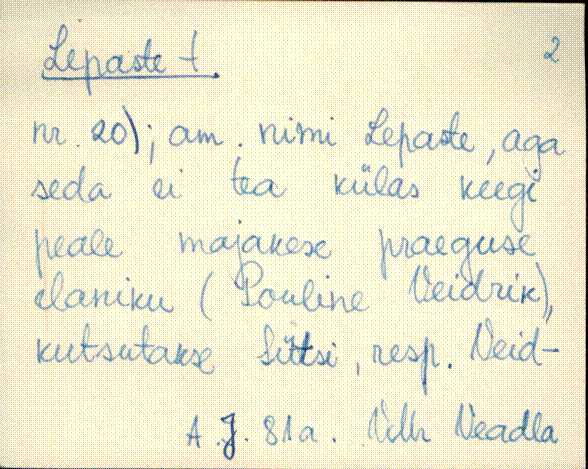 Lepaste t. 2
nr. 20); am. nimi Lepaste, aga
seda ei tea külas keegi
peale majakese praeguse
elaniku (Pouline Veidrik),
kutsutakse Sittsi, resp. Veid-
A. J. 81a. Vdr Veadla